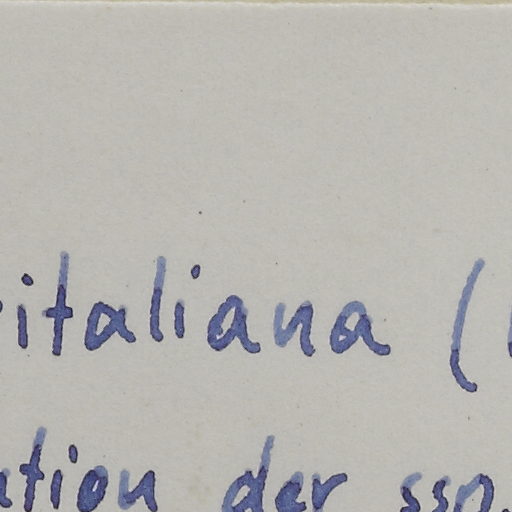 vitaliana (
ation der ssp.